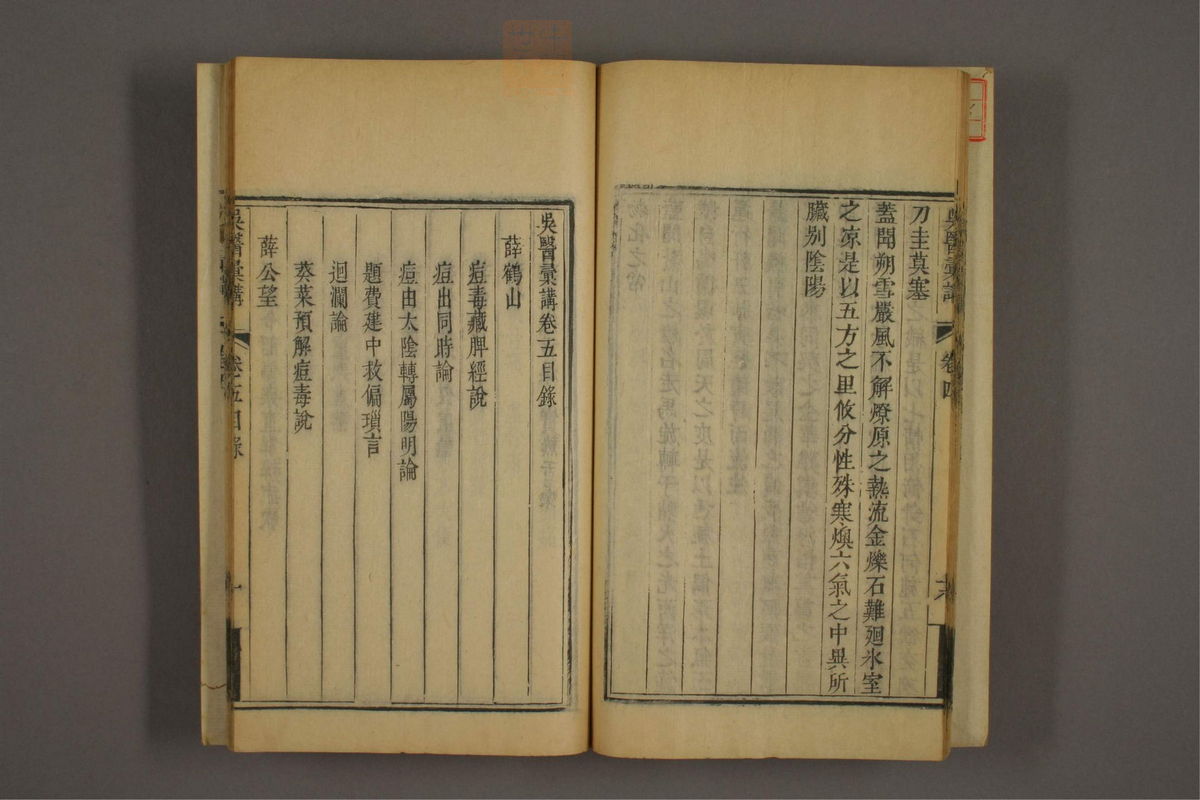 刀圭莫塞
蓋聞朔雪嚴風不解燎原之熱流金爍石難廻氷室
之涼是以五方之里攸分性殊寒燠六氣之中異所
臟别陰陽
吳醫彙講
卷四
吳醫彙講卷五目錄
薛鶴山
痘毒藏脾經說
痘出同時論
痘由太陰轉屬陽明論
題費建中救偏瑣言
迴瀾論
葵菜預解痘毒說
薛公望
吳醫彙講
卷五目錄
一